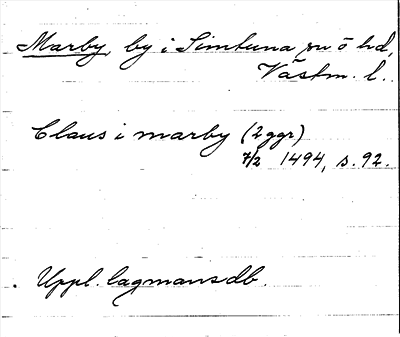 Marby, by i Simtuna sn ö hd,
Västm. l.
Claus i marby (2 ggr)
7/2 1494, s. 92.
Uppl. lagmansdb.